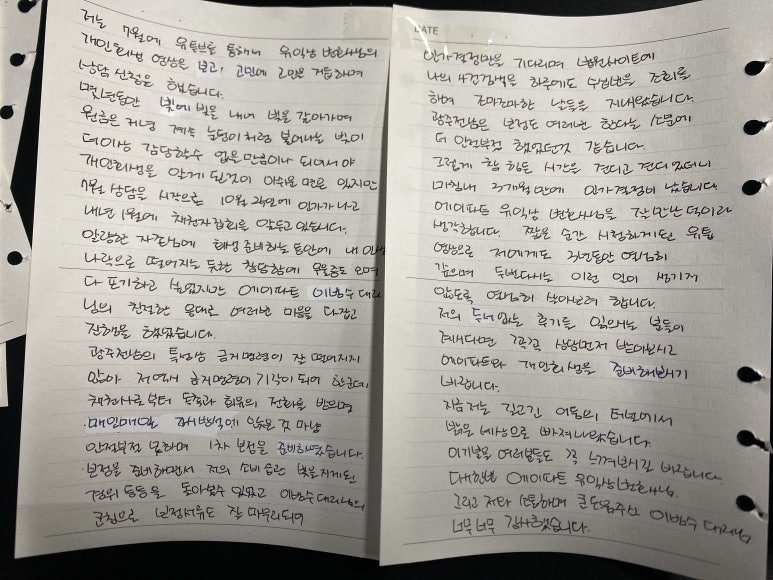 저는 7월에 유튜브를 통해서 유익상 변호사님의
개인회생 영상을 보고, 고민에 고민을 거듭하여
상담 신청을 했습니다.
몇년동안 빚에 빚을 내어 빚을 갚아가며
원금은 커녕 계속 눈덩이처럼 불어나는 빚이
더이상 감당할수 없을 만큼이나 되어서야
개인회생을 알게 된것이 아쉬울 만은 있지만
7월 상담을 시작으로 10월 24일에 인가가 나고
내년 1월에 채권자집회를 앞두고 있습니다.
알량한 자존심에 회생 준비하는 동안에 내 인생
나락으로 떨어지는 듯한 참담함에 우울증도 오며
다 포기하고 싶었지만 에이파트 이범수 대리
님의 친절한 응대로 여러번 마음을 다잡고
진행을 했었습니다.
광주전남의 특성상 금지명령이 잘 떨어지지
않아 저역시 금지명령이 기각이 되어 한달여
채권사로부터 독촉과 회유의 전화를 받으며
매일매일 가시방석에 앉은 것 마냥
안절부절 못하며 1차 보정을 준비하였습니다.
보정을 준비하면서 저의 소비 습관 빚을지게된
경위 등등을 돌아볼수 있었고 이범수대리님의
도움으로 보정서류도 잘 마무리되어
DATE
인가결정만을 기다리며 법원사이트에
나의 사건검색을 하루에도 수십번을 조회를
하며 조마조마한 날들을 지내왔습니다.
광주전남은 보정도 여러번 한다는 소문에
더 안절부절 했었던것 같습니다.
그렇게 참 힘든 시간을 견디고 견디었더니
마침내 3개월만에 인가결정이 났습니다.
에이파트 유익상 변호사님을 잘 만난 덕이라
생각합니다. 짧은 순간 시청하게된 유튭
영상으로 저에게도 3년동안 열심히
갚으며 두번다시는 이런 일이 생기지
않도록 열심히 살아보려 합니다.
저의 두서없는 후기를 읽으시는 분들이
계시다면 꼭꼭 상담먼저 받아보시고
에이파트와 개인회생을 준비해보시기
바랍니다.
지금 저는 길고긴 어둠의 터널에서
밝은 세상으로 빠져나왔습니다.
이기분을 여러분들도 꼭 느껴보시길 바랍니다.
대한변 에이파트 유익상변호사님
그리고 저와 소통하며 큰도움주신 이범수 대리님
너무너무 감사했습니다.